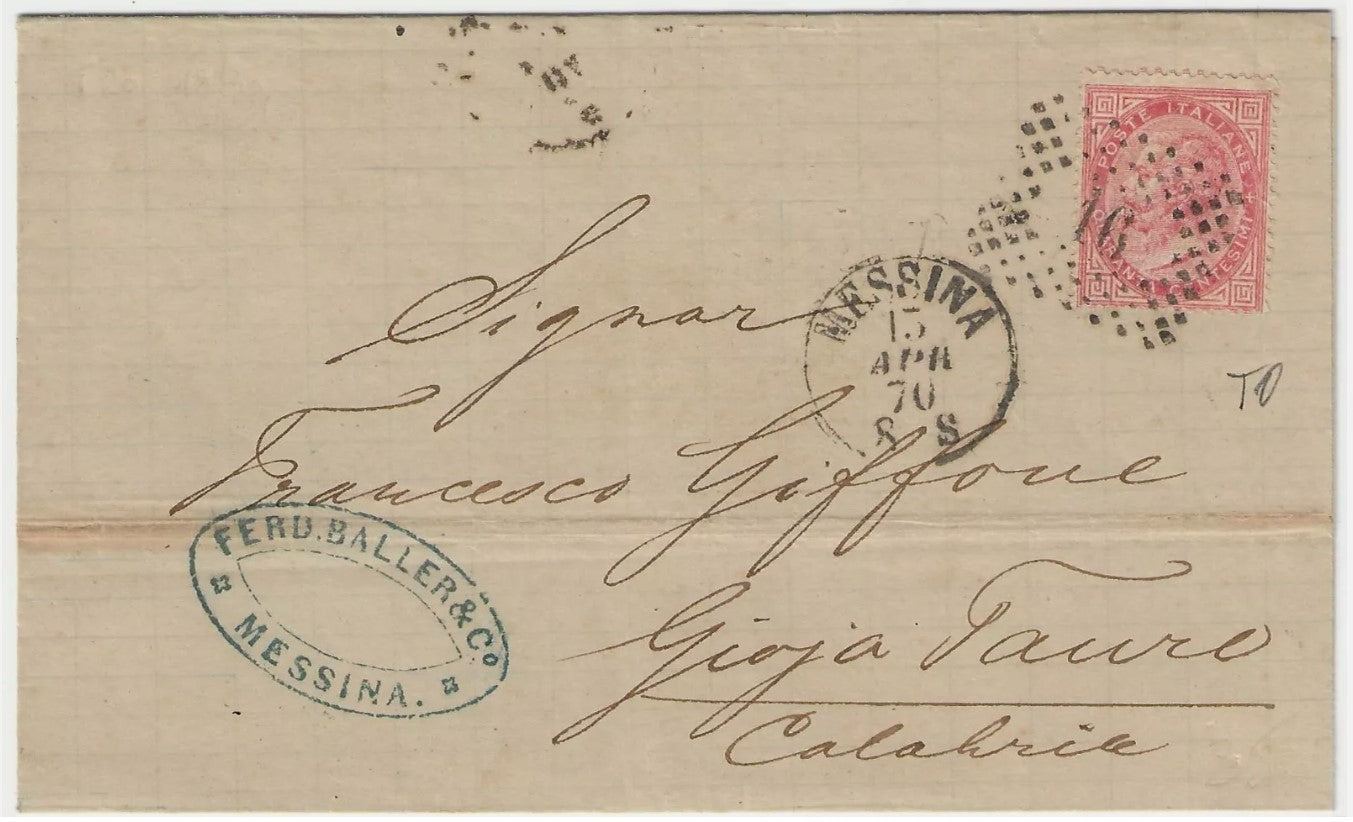 POSTE ITALIANE
16
MESSINA
15
APR
70
8 S
TO
Signor
Francesco Giffone
Gioja Tauro
Calabria
FERD. BALLER & Cº
MESSINA.